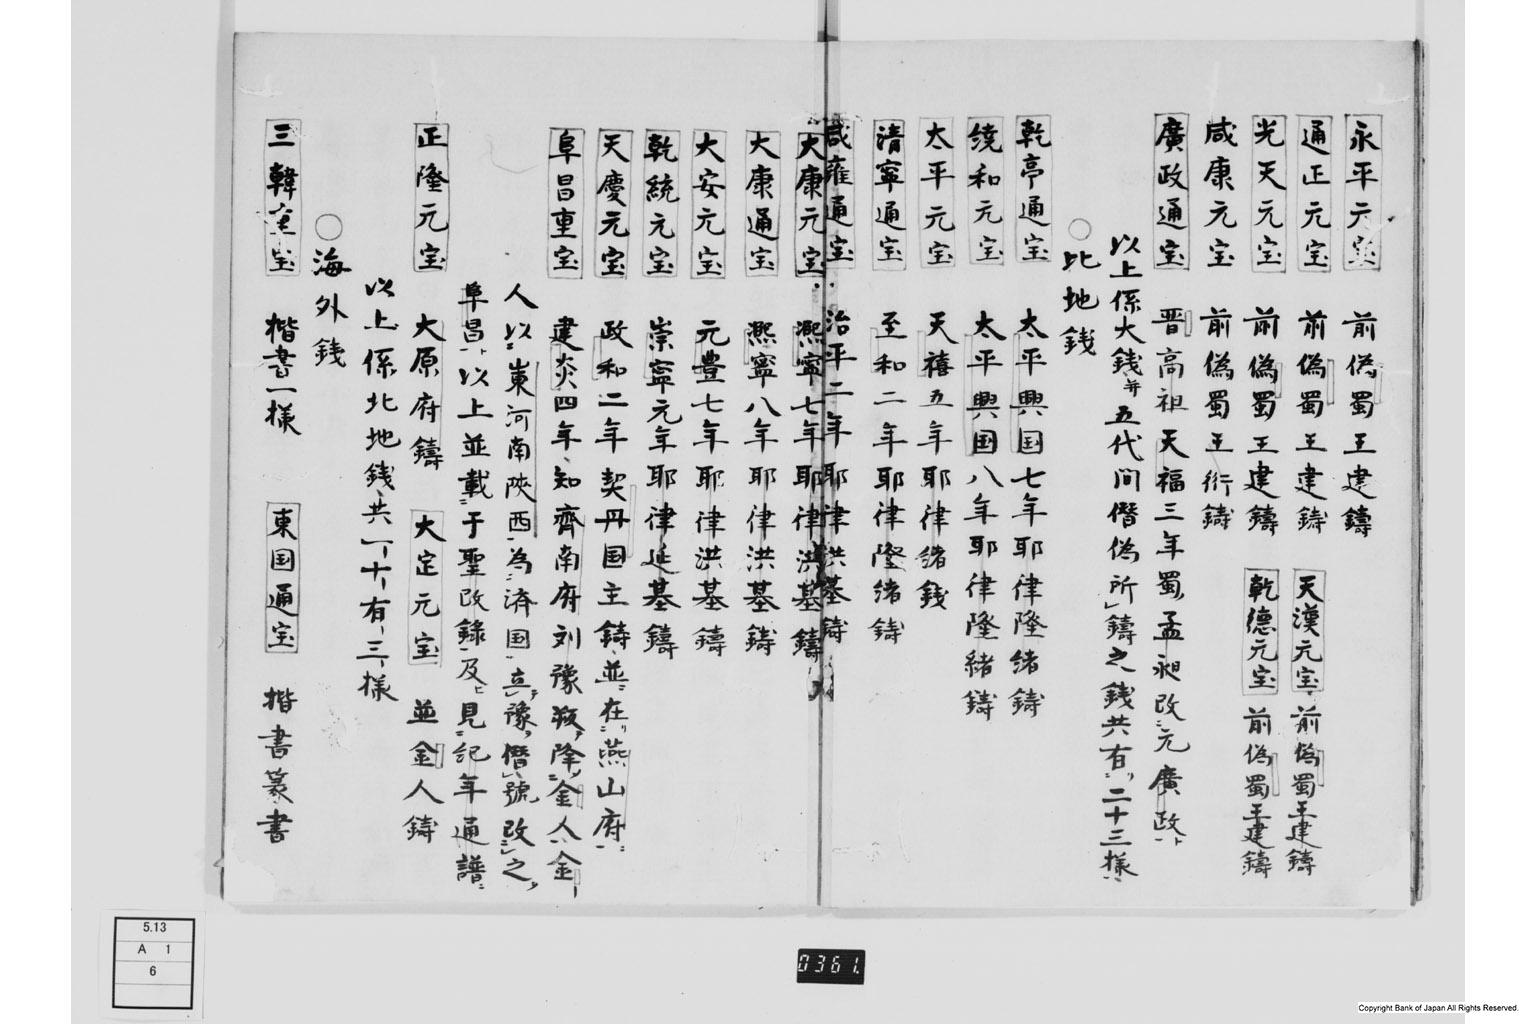 永平元宝 前偽蜀王建鑄
通正元宝 前偽蜀王建鑄 天漢元宝 前偽蜀王建鑄
光天元宝 前偽蜀王建鑄 乾德元宝 前偽蜀王建鑄
咸康元宝 前偽蜀王衍鑄
廣政通宝 晋高祖天福三年蜀孟昶改元廣政
以上係大銭并五代间僭偽所鑄之銭共有二十三樣
○北地銭
乾亨通宝 太平興国七年耶律隆緒鑄
統和元宝 太平興国八年耶律隆緒鑄
太平元宝 天禧五年耶律緒銭
清寧通宝 至和二年耶律隆緒鑄
咸雍通宝 治平二年耶律洪基鑄
大康元宝 熈寧七年耶律洪基鑄
大康通宝 熈寧八年耶律洪基鑄
大安元宝 元豊七年耶律洪基鑄
乾統元宝 崇寧元年耶律延基鑄
天慶元宝 政和二年契丹国主鑄並在燕山府
阜昌重宝 建炎四年知齊南府刘豫叛降金人金
人以東河南陝西為済国立豫僭號改之
阜昌以上並載于聖改錄及見紀年通譜
正隆元宝 大原府鑄 大定元宝 並金人鑄
以上係北地銭共一十有三樣
○海外銭
三韓重宝 楷書一樣 東国通宝 楷書篆書
5.13
A 1
6
0361.
Copyright Bank of Japan All Rights Reserved.